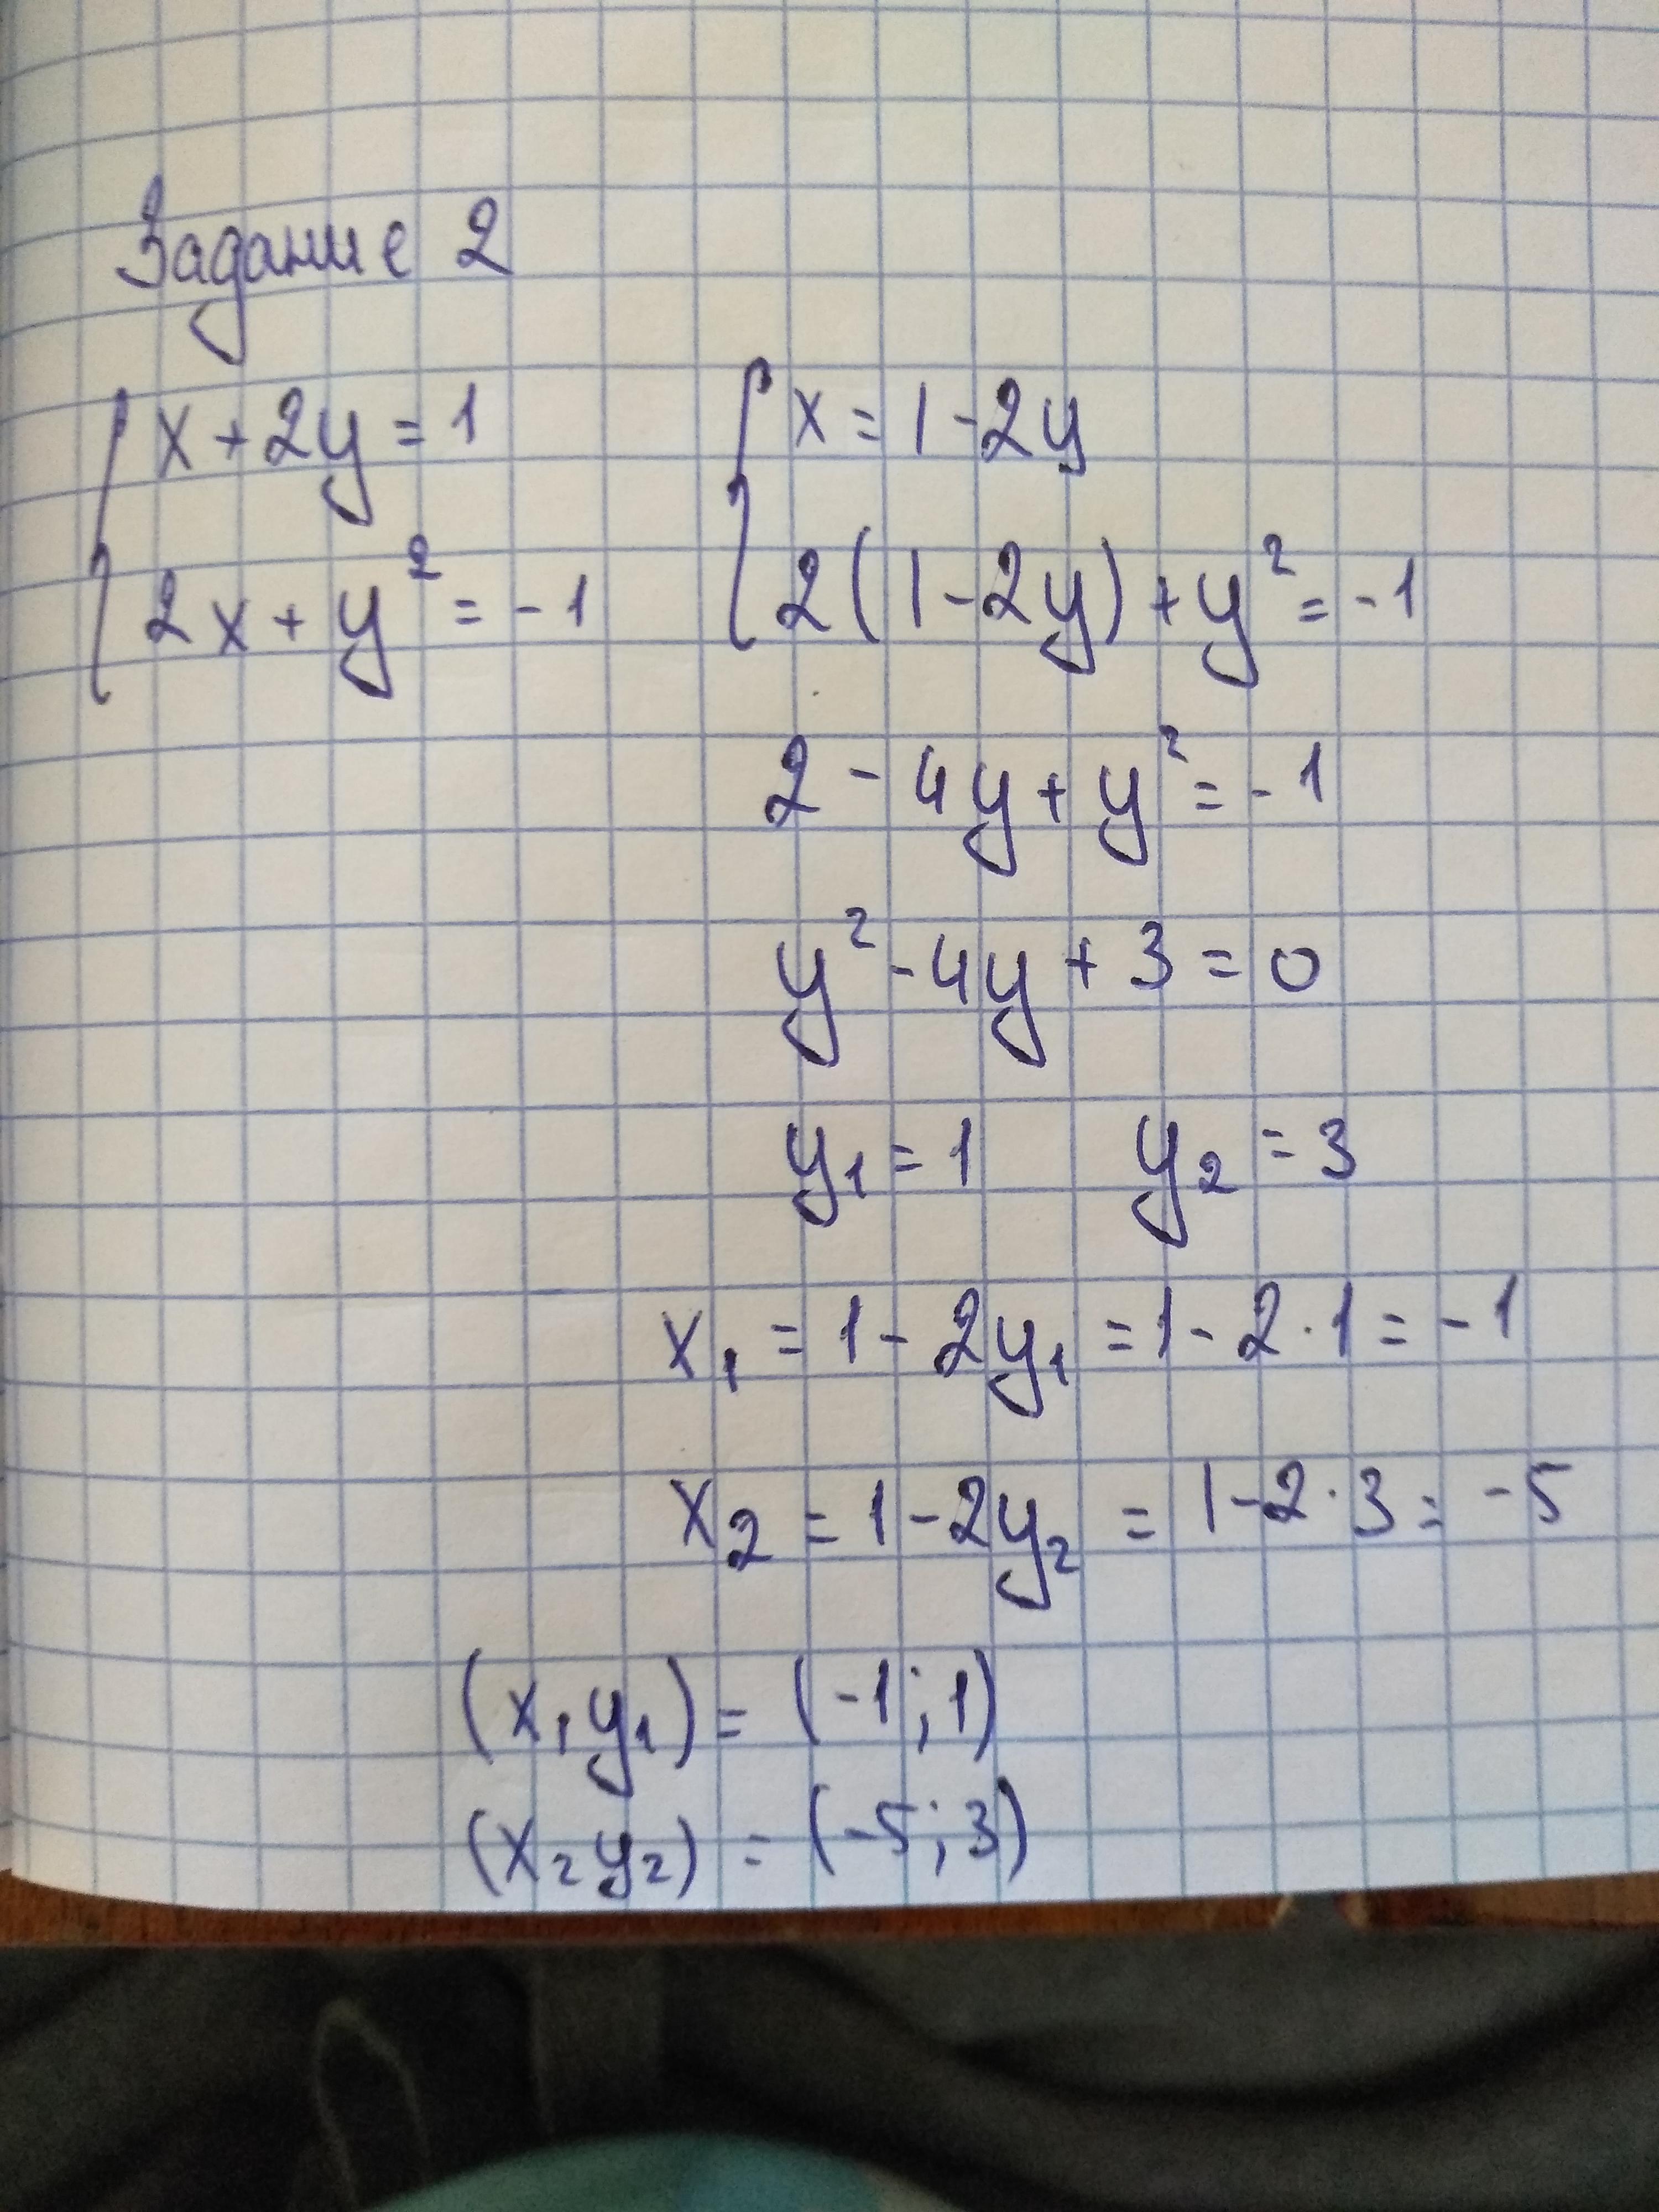 Задание 2
{ x + 2y = 1
2x + y² = -1
{ x = 1 - 2y
2(1 - 2y) + y² = -1
2 - 4y + y² = -1
y² - 4y + 3 = 0
y₁ = 1 y₂ = 3
x₁ = 1 - 2y₁ = 1 - 2·1 = -1
x₂ = 1 - 2y₂ = 1 - 2·3 = -5
(x₁ y₁) = (-1; 1)
(x₂ y₂) = (-5; 3)